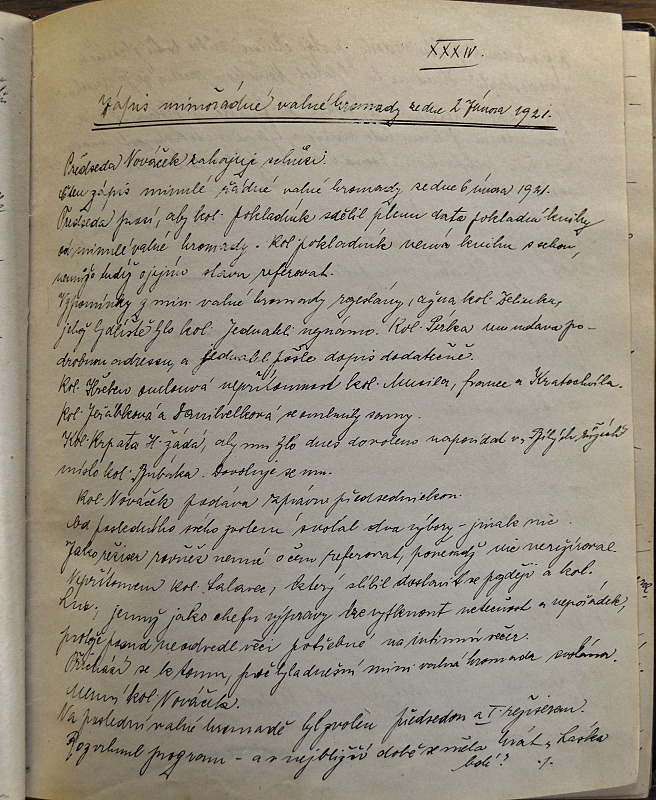 XXXIV.
Zápis mimořádné valné hromady ze dne 2 února 1921.
Předseda Nováček zahajuje schůzi.
Čten zápis minulé řádné valné hromady ze dne 6 února 1921.
Předseda prosí, aby kol. pokladník sdělil plenu data pokladní knihy
od minulé valné hromady. Kol pokladník nemá knihu s sebou,
nemůže tudíž o jejím stavu referovat.
Vzpomínky z min. valné hromady rozeslány, až na kol. Zelinka,
jehož bydliště bylo kol. Jednatel neznámo. Kol. Peřka mu udává po-
drobnou adressu, a jednatel pošle dopis dodatečně.
Kol. Hřeben omlouvá nepřítomnost kol. Musila, france a Kratochvíla.
Kol. Jeřábková a Danihelková se omluvily samy.
Kol. Krpata H. žádá, aby mu bylo dnes dovoleno napovídat v
místo kol. Bubníka. Dovoluje se mu.
Kol. Nováček podává zprávu předsednickou.
Od posledního svého zvolení svolal dva výbory – jinak nic.
Jako režiser rovněž nemá o čem referovat, poněvadž nic nerežíroval.
Nepřítomen kol. Salavec, který slíbil dostavit se později a kol.
jemuž jako chefu výpravy lze vytknout netečnost a nepořádek,
protože posud neodvedl věci potřebné na intimní večer.
Přechází se k tomu, proč byla dnešní mim. valná hromada svolána.
Mluví kol. Nováček.
Na poslední valné hromadě byl zvolen předsedou a I. režiserem.
Rozvrhnul program – a v nejbližší době se měla hrát „Láska
bolí"? ·/.